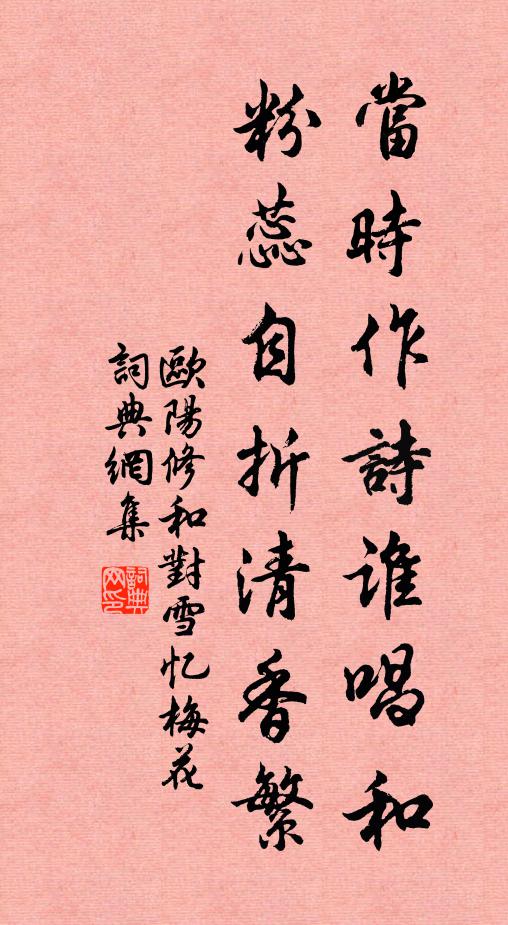 當時作詩誰唱和
粉蕊自折清香繁
歐陽修和對雪忆梅花
詞典網集
詞典网印